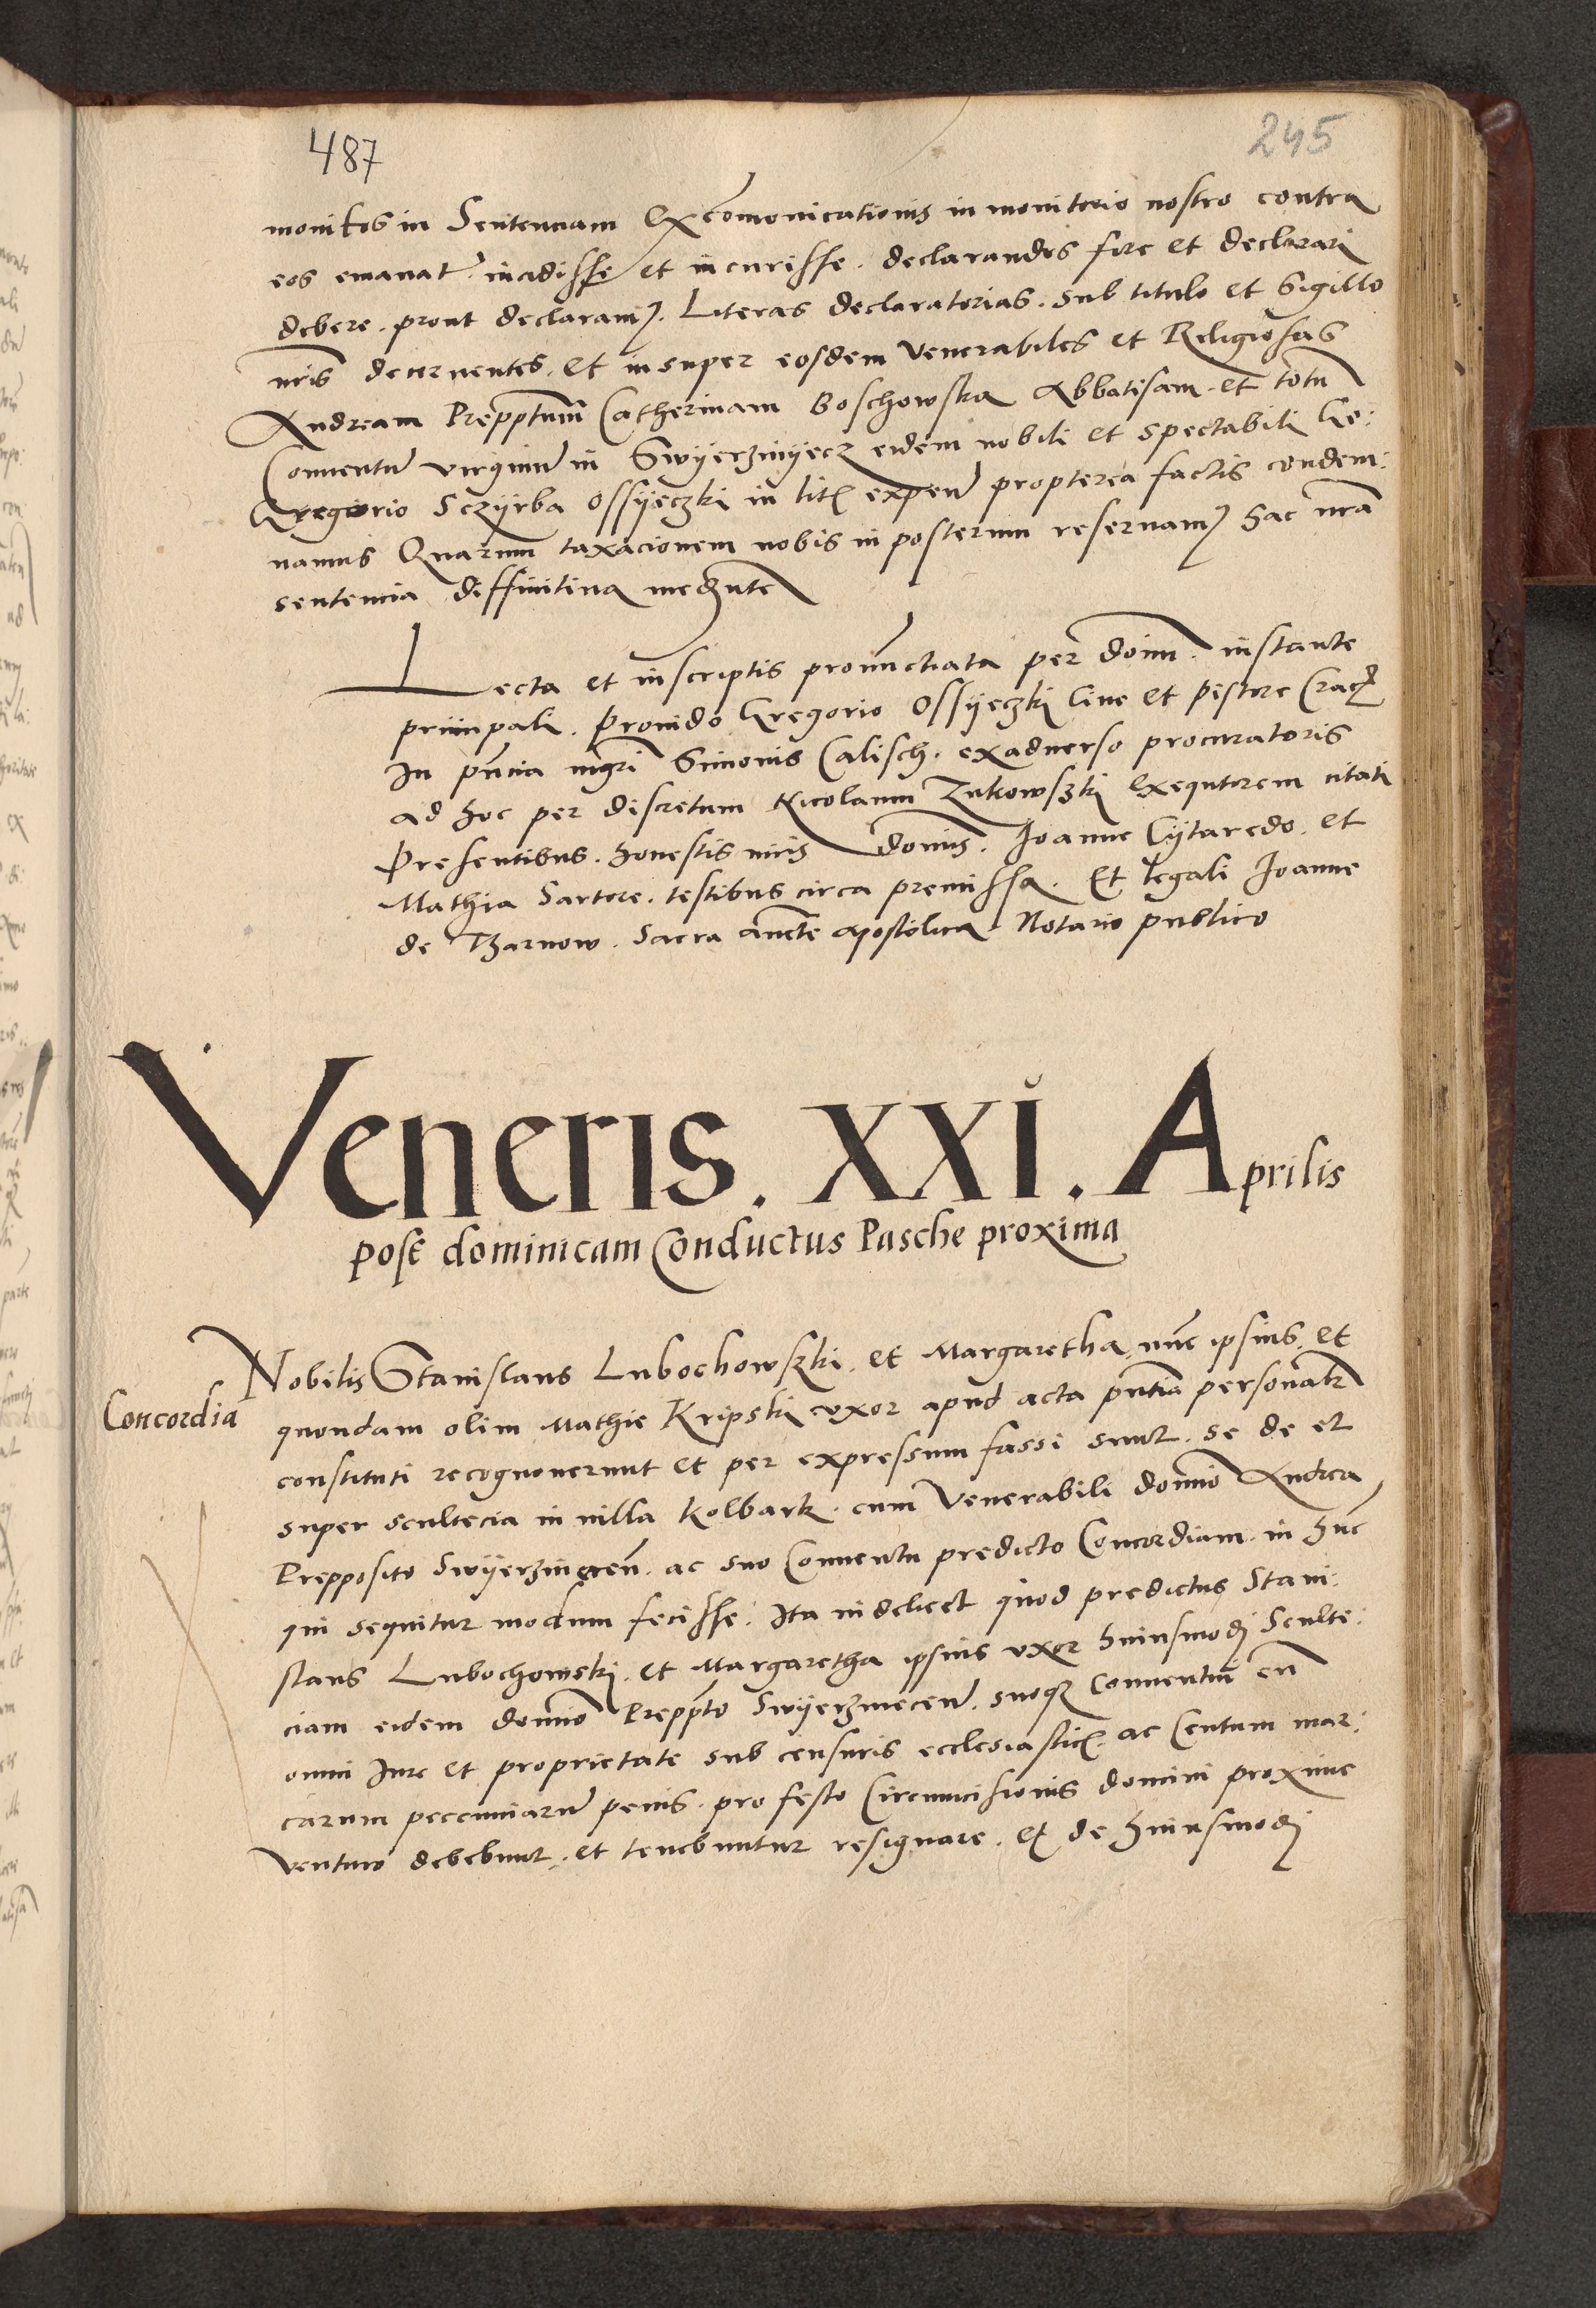 487
245
monitos in Sententiam Excomonicationis in monitorio nostro contra
eos emanat. incidisse et incurisse. declarandos fore et declarari
debere. prout declaram9. Literas declaratorias. sub titulo et Sigillo
nris decernentes. et insuper eosdem Venerabiles et Religiosas
Andream Prepptum Catherinam Boschowska Abbatisam. et totu
Conuentu virginu in Swyerzinyecz eidem nobili et spectabili Gre:
Gregorio Sczyrba Ossyeczki in lit expen propterea factis condem:
namus Quarum taxacionem nobis in posterum reseruam9 hac nra
sentencia diffinitiua mediante
Lecta et in scriptis pronunctiata per donm. instante
principali. Prouido Gregorio Ossyeczki Ciue et pistore Crac
In pncia mgri Simonis Calisch. ex aduerso procuratoris
ad hoc per discretum Nicolaum Zukowszki Exequtorem citati
Presentibus. honestis viris donis. Joanne Cytaredo. et
Mathia Sartore. testibus circa premissa. Et legali Joanne
de Tharnow. Sacra aucte apostolica Notario publico
Veneris. XXI. Aprilis
post dominicam Conductus Pasche proxima
Concordia
Nobilis Stanislaus Lubochowszki. et Margaretha nunc ipsius. et
quondam olim Mathie Kripski uxor apud acta pntia personalr
constituti recognouerunt et per expressum fassi sunt. se de et
super scultecia in villa Kolbark. cum Venerabili domno Andrea
Prepposito Swyerzinecen. ac suo Conuentu predicto Concordiam. in hunc
qui sequitur modum fecisse. Ita videlicet quod predictus Stani:
slaus Lubochowski. et Margaretha ipsius uxor huiusmodi Sculte:
ciam eidem domno Preppto Swyerzinecen. suoq Conuentui cu
omni Iure et proprietate sub censuris ecclesiastic. ac Centum mar:
carum peccuniaru penis. pro festo Circumcisionis domini proxime
venturo debebunt. et tenebuntur resignare. et de huiusmodi